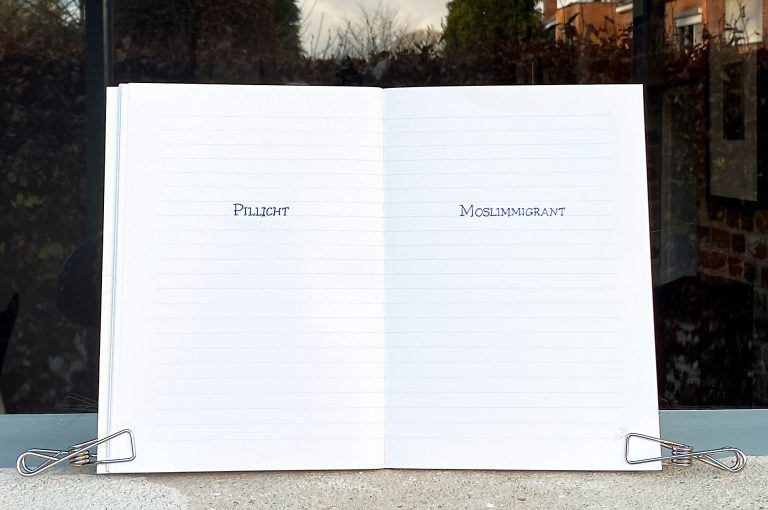 Pillicht
Moslimmigrant